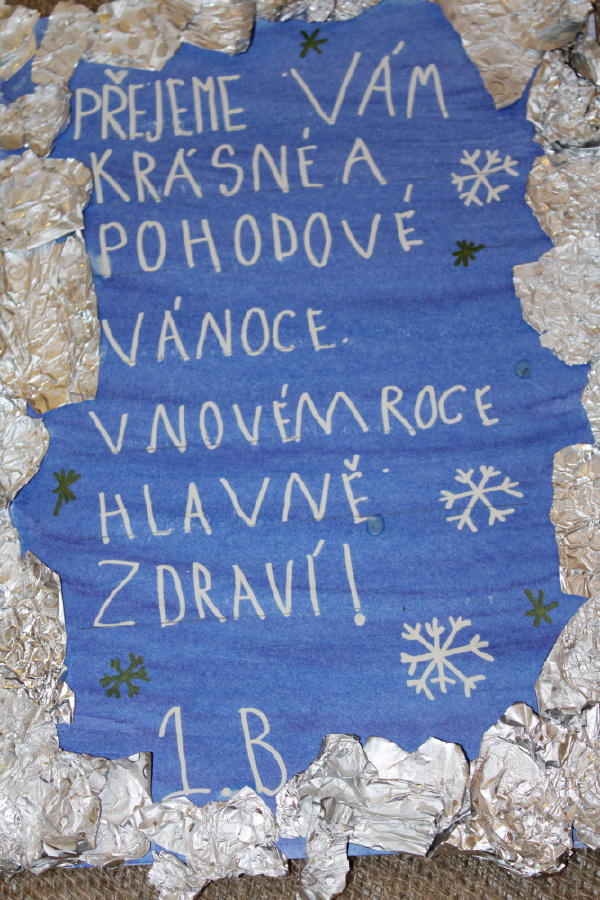 PŘEJEME VÁM
KRÁSNÉ A
POHODOVÉ
VÁNOCE.
V NOVÉM ROCE
HLAVNĚ
ZDRAVÍ!
1.B